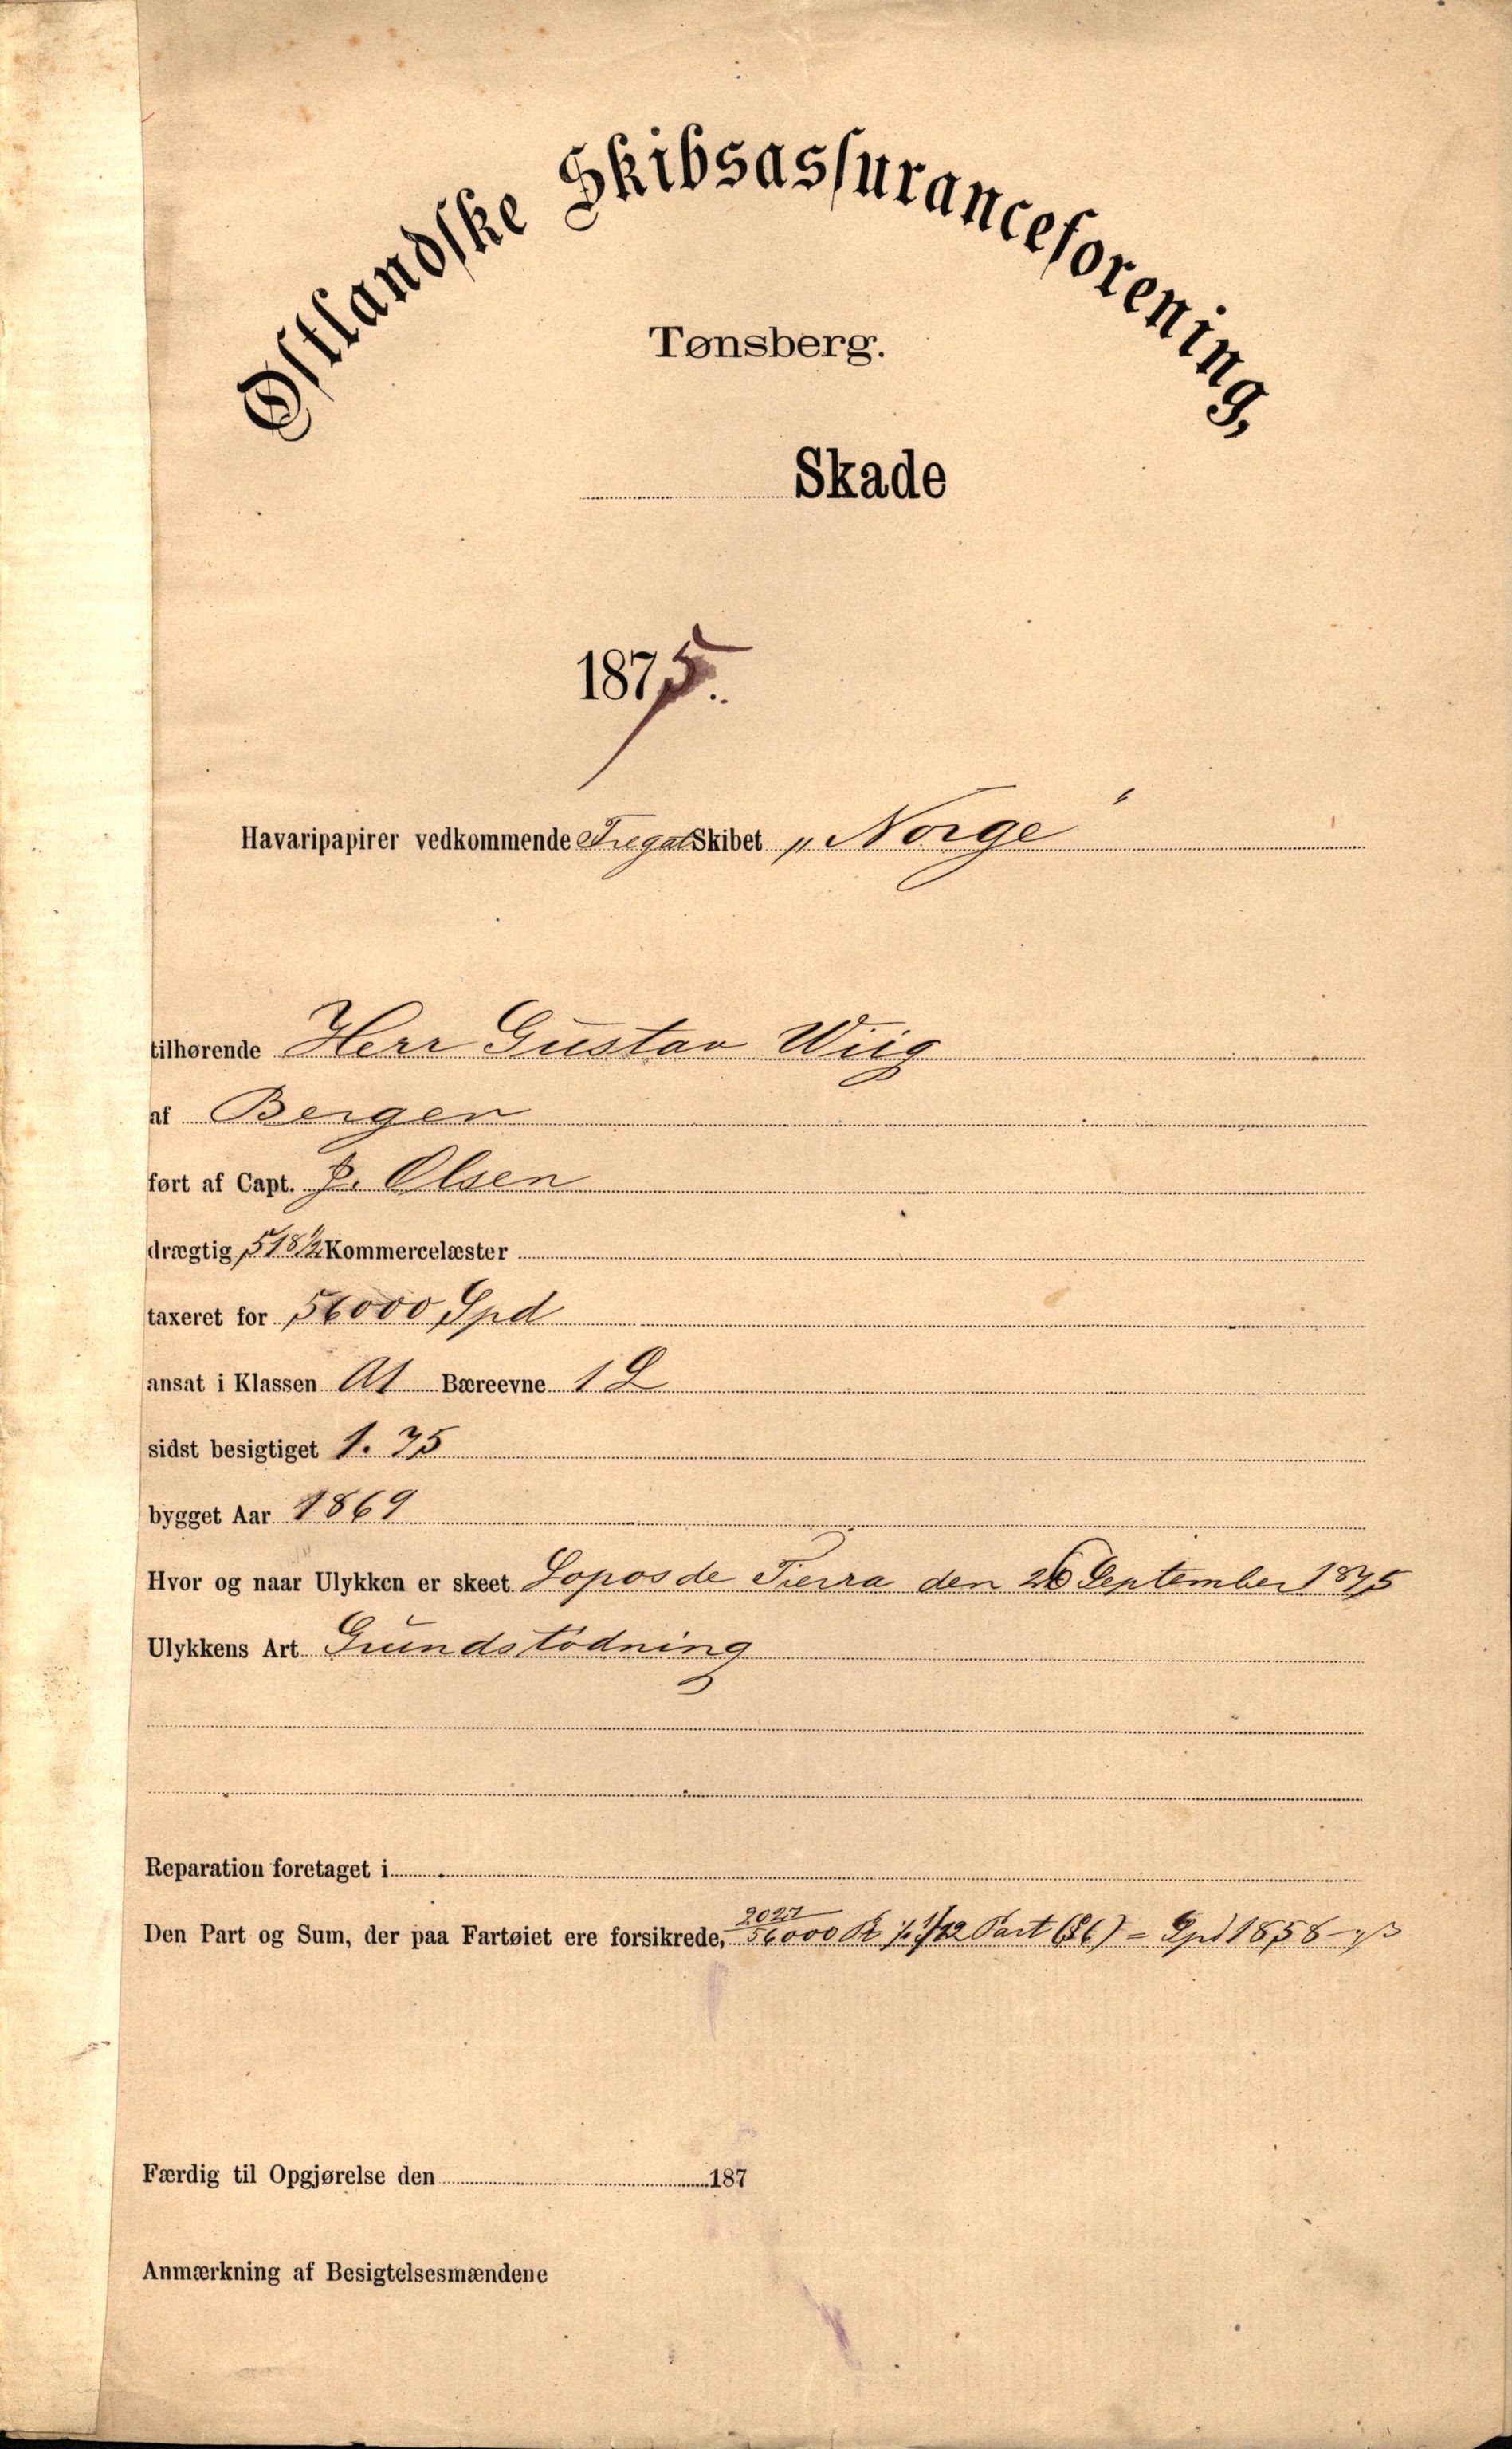 Østlandske Skibsassuranceforening,
Tønsberg.
Skade
1875.
Havaripapirer vedkommende Fregatskibet „Norge“
tilhørende Herr Gustav Wiig
af Bergen
ført af Capt. J. Olsen
drægtig 518½ Kommercelæster
taxeret for 56000 Spd
ansat i Klassen A1 Bæreevne 1 L
sidst besigtiget 1. 75
bygget Aar 1869
Hvor og naar Ulykken er skeet Lopos de Tierra den 26 September 1875
Ulykkens Art Grundstödning
Reparation foretaget i
Den Part og Sum, der paa Fartøiet ere forsikrede, 2027/56000 1/12 Part (§6) = Spd 1858
Færdig til Opgjørelse den 187
Anmærkning af Besigtelsesmændene